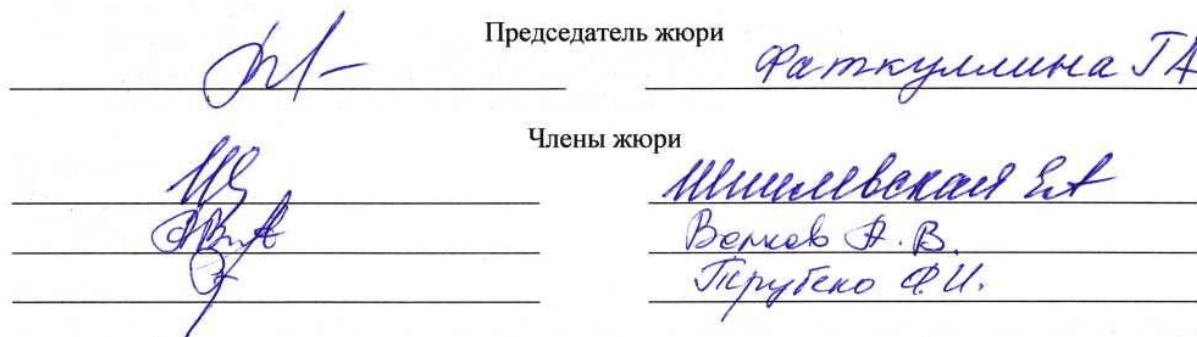 Председатель жюри
Фаткуллина ГА
Члены жюри
Шишлевская ЕА
Волков А. В.
Трубено Ф.И.